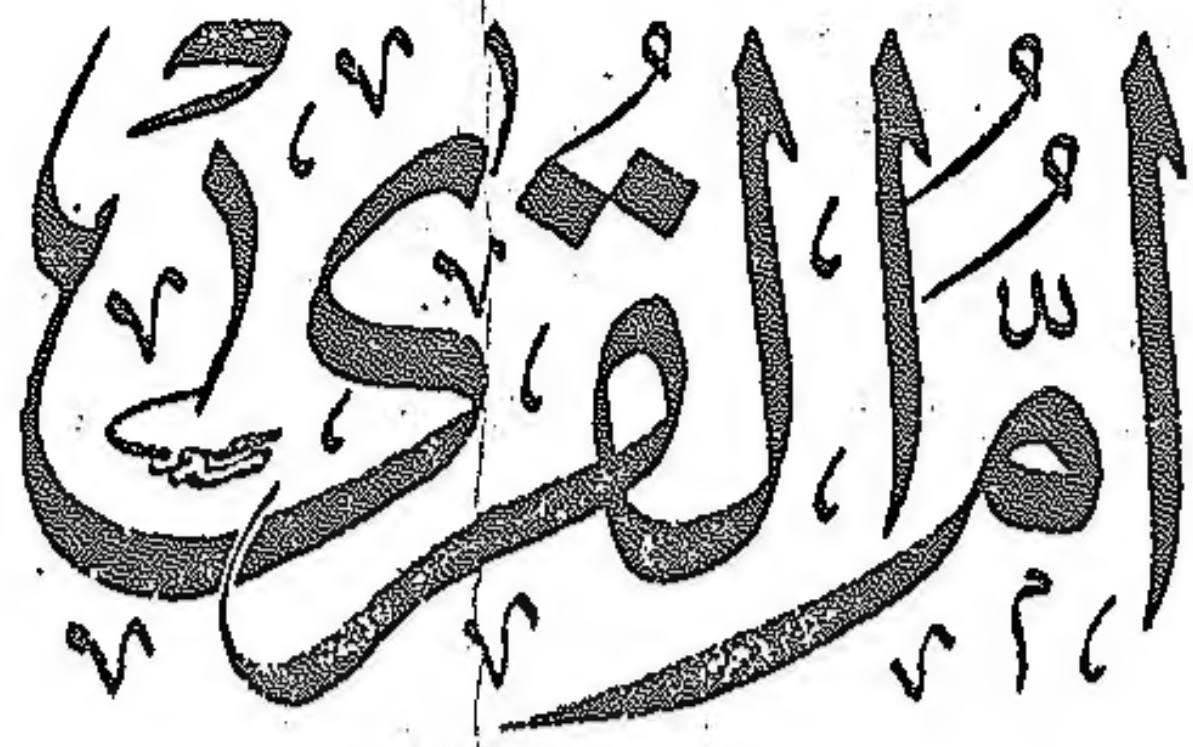 أُمُّ القُرى